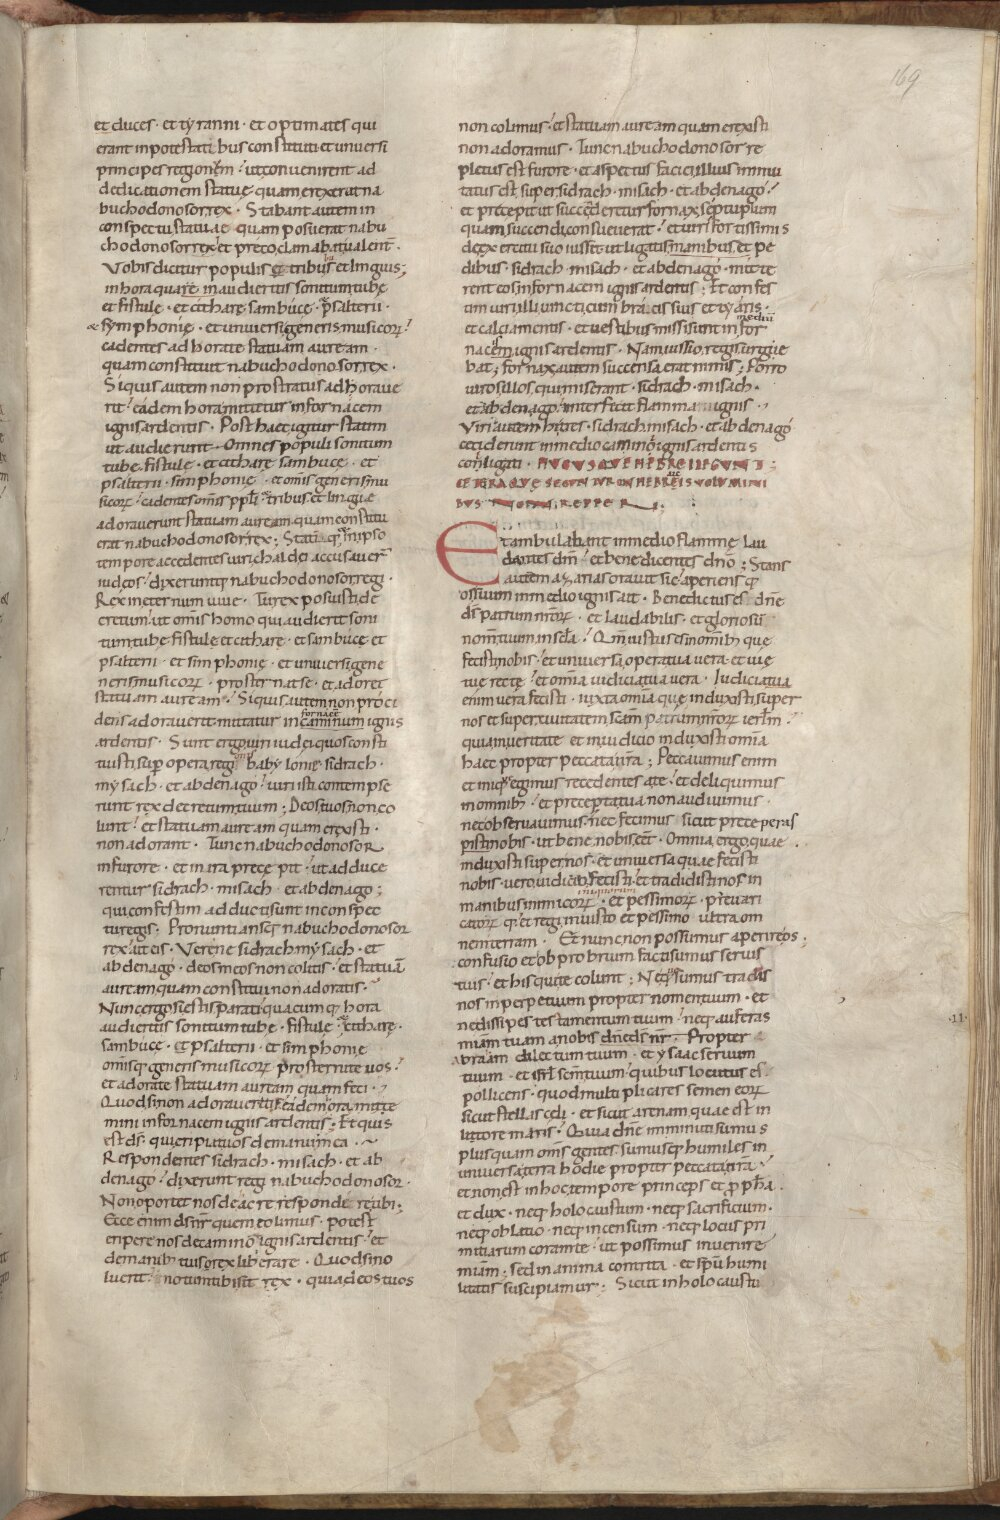 169
et duces · et tyranni · et optimates qui
erant in potestatibus constituti et universi
principes regionem · ut convenirent ad
dedicationem statuę quam erexerat na
buchodonosor rex · Stabant autem in
conspectu statuae quam posuerat nabu
chodonosor rex et preco clamabat valenter ·
Vobis dicitur populis et tribubus et linguis ;
in hora qua re in audieritis sonitum tubę
et fistulę · et citharę sambucę · psalterii ·
& symphonię · et universi generis musicorum
cadentes adhorate statuam auream ·
quam constituit nabuchodonosor rex ·
Siquis autem non prostratus adhorave
rit eadem hora mittetur in fornacem
ignis ardentis · Post haec igitur statim
ut audierunt · Omnes populi sonitum
tubę fistulę · et citharę sambucę · et
psalterii · simphonię · et omis generis mu
sicorum cadentes omnis ppli tribus et linguę
adoraverunt statuam auream quam constitu
erat nabuchodonosor rex ; Statimque in ipso
tempore accedentes viri chaldei accusaver
iudeos dixeruntque nabuchodonosor regi ·
Rex in eternum vive · Tu rex posuisti de
cretum ut omnis homo qui audierit soni
tum tubę fistulę et citharę · et sambucę et
psalterii · et simphonię · et universi gene
neris musicorum · prosternat se · et adoret
statuam auream · Siquis autem non proci
dens adoraverit mittatur in caminum ignis
fornacē
ardentis · Sunt ergo viri iudei quos consti
tuisti sup opera regionis babylonię sidrach ·
mysach · et abdenago viri isti contempse
runt rex decretum tuum ; Deos tuos non co
lunt et statuam auream quam erexisti ·
non adorant · Tunc nabuchodonosor
in furore · et in ira precepit ut adduce
rentur sidrach · misach · et abdenago ;
qui confestim adducti sunt in conspec
tu regis · Pronuntiansque nabuchodonosor
rex ait eis · Vere ne sidrach mysach · et
abdenago · deos meos non colitis · et statuā
auream quam constitui non adoratis ·
Nunc ergo si estis parati quacumque hora
audieritis sonitum tubę · fistulę · citharę ·
sambucę · et psalterii · et simphonię
omnisque generis musicorum prosternite vos ·
et adorate statuam auream quam feci ·
Quod si non adoraveritis eadem ora mitte
mini in fornacem ignis ardentis ; Et quis
est ds · qui eripiat vos de manu mea ·
Respondentes sidrach · misach · et ab
denago dixerunt regi nabuchodonosor ·
Non oportet nos de ac re respondere tibi ;
Ecce enim ds nr quem colimus · potest
eripere nos de camino ignis ardentis · et
de manib tuis o rex liberare · Quod si no
luerit notum tibi sit rex · quia deos tuos
non colimus et statuam auream quam erexisti
non adoramus · Tunc nabuchodonosor re
pletus est furore · et aspectus faciei illius inmu
tatus est super sidrach · misach · et abdenago
et precepit ut succenderetur fornax septuplum
quam succendi consueverat · et viris fortissimis
de exercitu suo iussit ut ligatis manibus et pe
dibus · sidrach · misach · et abdenago · mitte
rent eos in fornacem ignis ardentis ; Et confes
tim viri illi vincti cum bracis suis et tyaris ·
et calciamentis · et vestibus missi sunt in for
medium
nacem ignis ardentis · Nam iussio regis urgue
bat ; fornax autem succensa erat nimis ; Porro
viros illos qui miserant · sidrach · misach ·
et abdenago interfecit flamma ignis ·
Viri autem hi tres · sidrach misach · et abdenago
ceciderunt in medio camino ignis ardentis
conligati · HUCUSQUE HEBREI LEGUNT :
CETERA QUE SECUNTUR IN HEBREIS VOLUMINI
BUS NON REPPERI ;
Et ambulabant in medio flammę lau
dantes dm et benedicentes dno ; Stans
autem azarias oravit sic aperiens que
os suum in medio ignis ait · Benedictus es dne
ds patrum nrorum · et laudabilis · et gloriosu
nom tuum in scla Qm iustus es in omnib que
fecisti nobis et universa opera tua vera et vię
tuę rectę · et omnia iudicia tua vera · Iudicia tua
enim vera fecisti · iuxta omnia quę induxisti super
nos et super civitatem scam patrum nrorum ierlm
quia in veritate et in iudicio induxisti omnia
haec propter peccata nra ; Peccavimus enim
et inique egimus recedentes a te et deliquimus
in omnib et precepta tua non audivimus ·
nec observavimus · nec fecimus sicut preceperas
nobis · ut bene nobis eet · Omnia ergo quae
induxisti super nos · et universa quae fecisti
nobis vero iudicio fecisti · et tradidisti nos in
manibus inimicorum · et pessimorum · prevari
iniquorum
catorum que et regi iniusto et pessimo ultra om
nem terram · Et nunc non possumus aperire os ;
confusio et obprobrium facti sumus servis
tuis · et his qui te colunt ; Neque sumus tradas
nos in perpetuum propter nomen tuum · et
ne dissipes testamentum tuum neque auferas
miam tuam a nobis dne ds nr · Propter
abraam dilectum tuum · et ysaac servum
tuum · et isrl scm tuum quibus locutus es
pollicens · quod multiplicares semen eorum
sicut stellas celi · et sicut arenam quae est in
littore maris Quia dne imminuti sumus
plus quam oms gentes sumusque humiles in
universa terra hodie propter peccata nra
et non est in hoc tempore princeps et propha ·
et dux · neque holocaustum · neque sacrificium ·
neque oblatio · neque incensum · neque locus pri
mitiarum coram te ut possimus invenire
miam ; sed in anima contrita · et spu humi
litatis suscipiamur ; Sicut in holocaustu
·11·